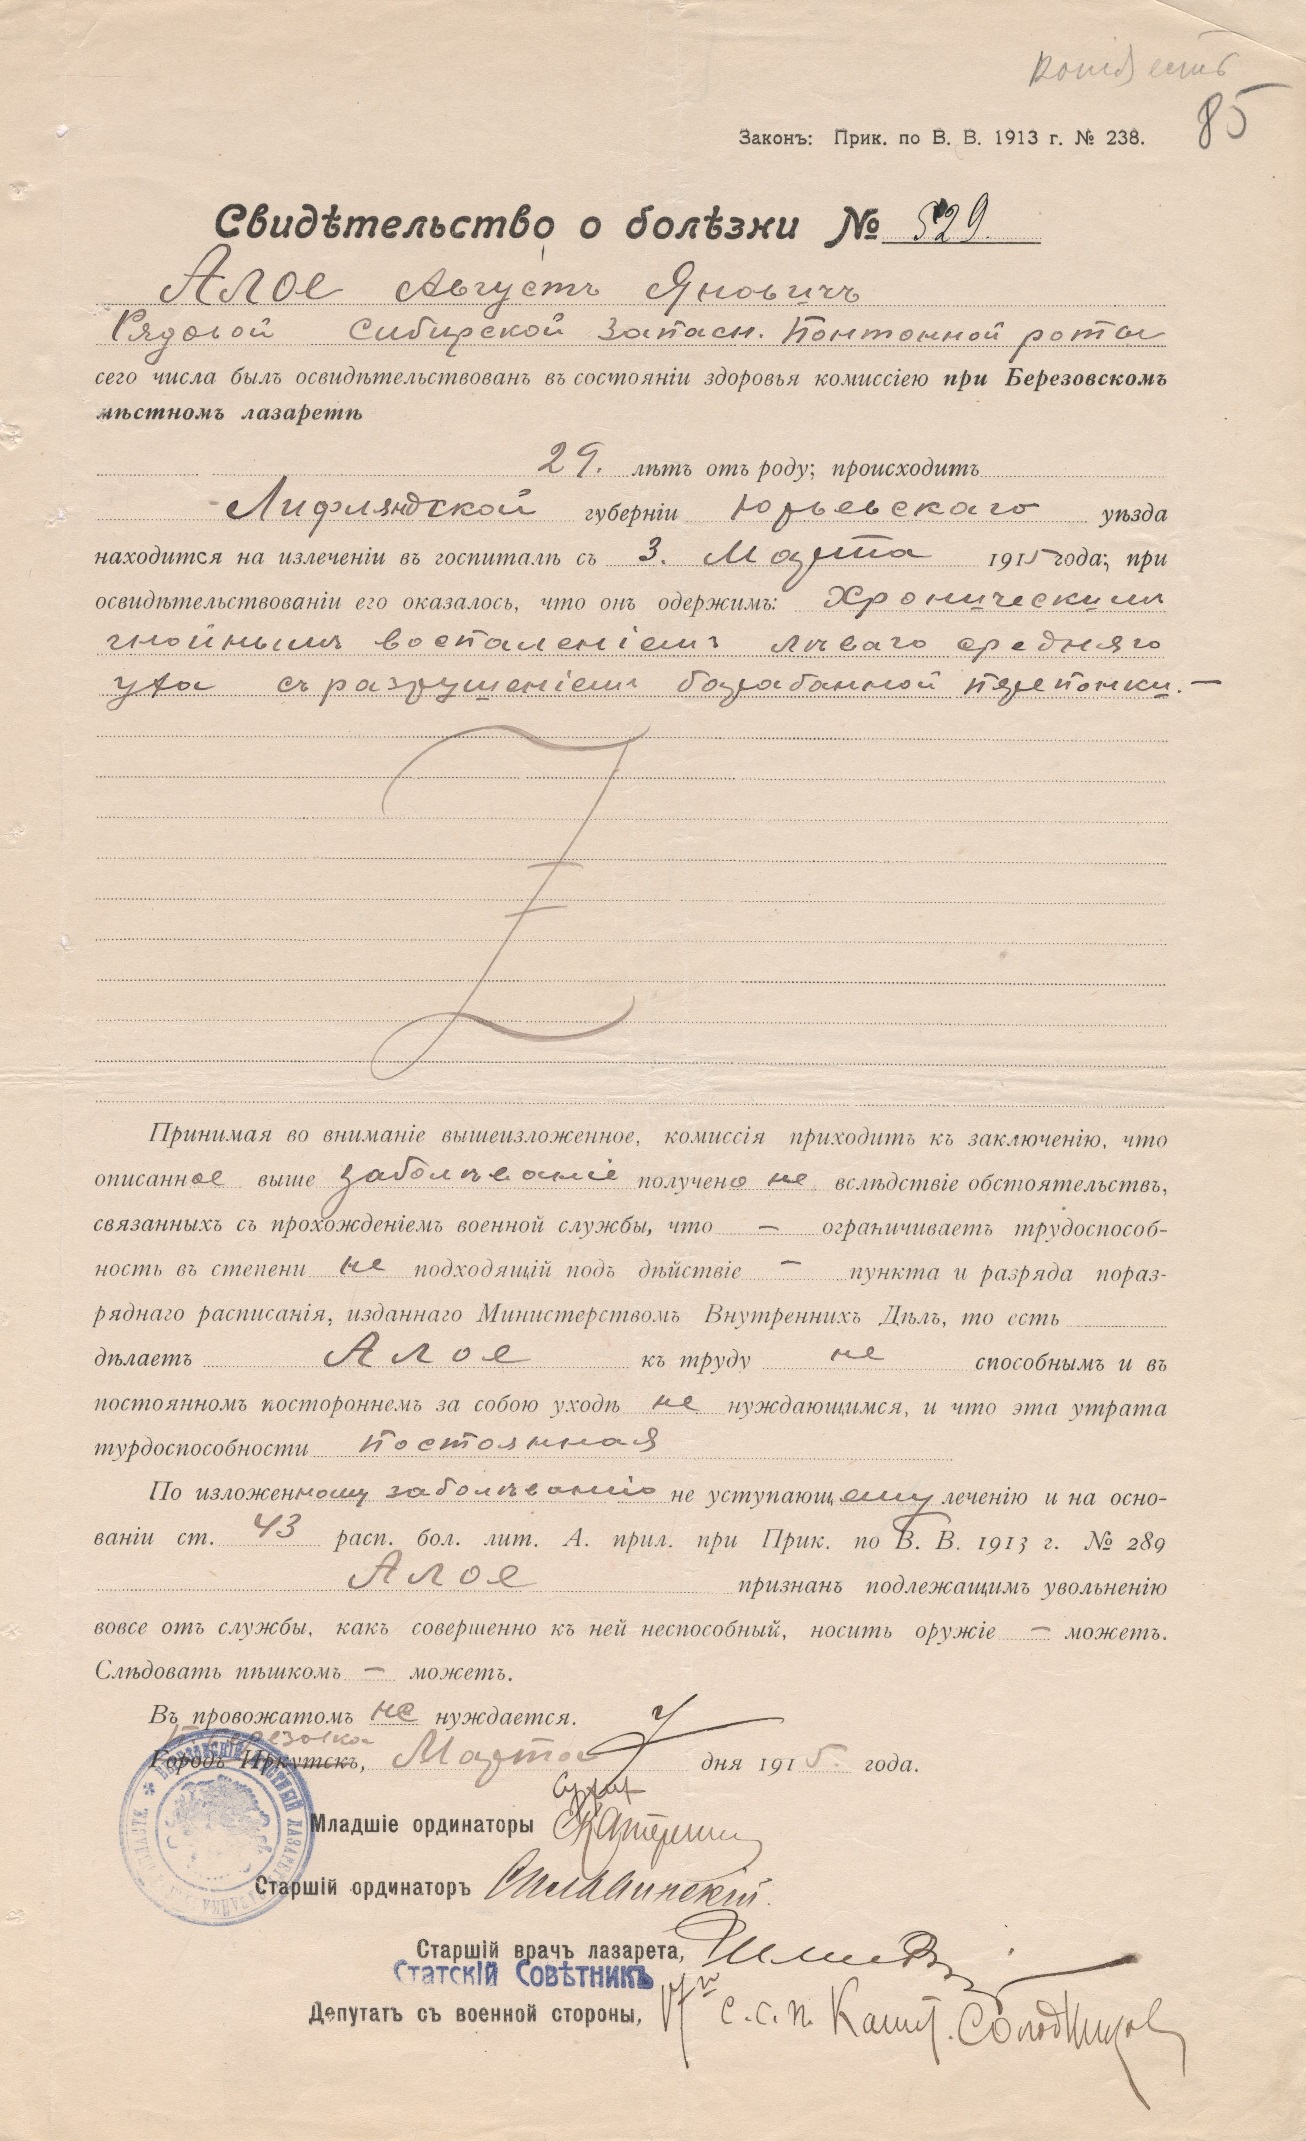 85
Законъ: Прик. по В. В. 1913 г. № 238.
Свидѣтельство о болѣзни № 529.
Алое Августъ Яновичъ
Рядовой Сибирской Запасн. Понтонной роты
сего числа былъ освидѣтельствованъ въ состояніи здоровья комиссіею при Березовскомъ
мѣстномъ лазаретѣ
29. лѣтъ отъ роду; происходитъ
Лифляндской губерніи Юрьевскаго уѣзда
находится на излеченіи въ госпиталѣ съ 3. Марта 1915 года; при
освидѣтельствованіи его оказалось, что онъ одержимъ: Хроническимъ
гнойнымъ воспаленіемъ лѣваго средняго
уха съ разрушеніемъ барабанной перепонки. —
Принимая во вниманіе вышеизложенное, комиссія приходитъ къ заключенію, что
описанное выше заболѣваніе получено не вслѣдствіе обстоятельствъ,
связанныхъ съ прохожденіемъ военной службы, что — ограничиваетъ трудоспособ-
ность въ степени не подходящій подъ дѣйствіе — пункта и разряда пораз-
ряднаго расписанія, изданнаго Министерствомъ Внутреннихъ Дѣлъ, то есть
дѣлаетъ Алое къ труду не способнымъ и въ
постоянномъ постороннемъ за собою уходѣ не нуждающимся, и что эта утрата
турдоспособности постоянная
По изложенному заболѣванію не уступающему леченію и на осно-
ваніи ст. 43 расп. бол. лит. А. прил. при Прик. по В. В. 1913 г. № 289
Алое признанъ подлежащимъ увольненію
вовсе отъ службы, какъ совершенно къ ней неспособный, носить оружіе — можетъ.
Слѣдовать пѣшкомъ — можетъ.
Въ провожатомъ не нуждается.
Городъ Иркутскъ, Марта 7 дня 1915. года.
Младшіе ординаторы
Старшій ординаторъ
Старшій врачъ лазарета,
Статскій Совѣтникъ
Депутатъ съ военной стороны,